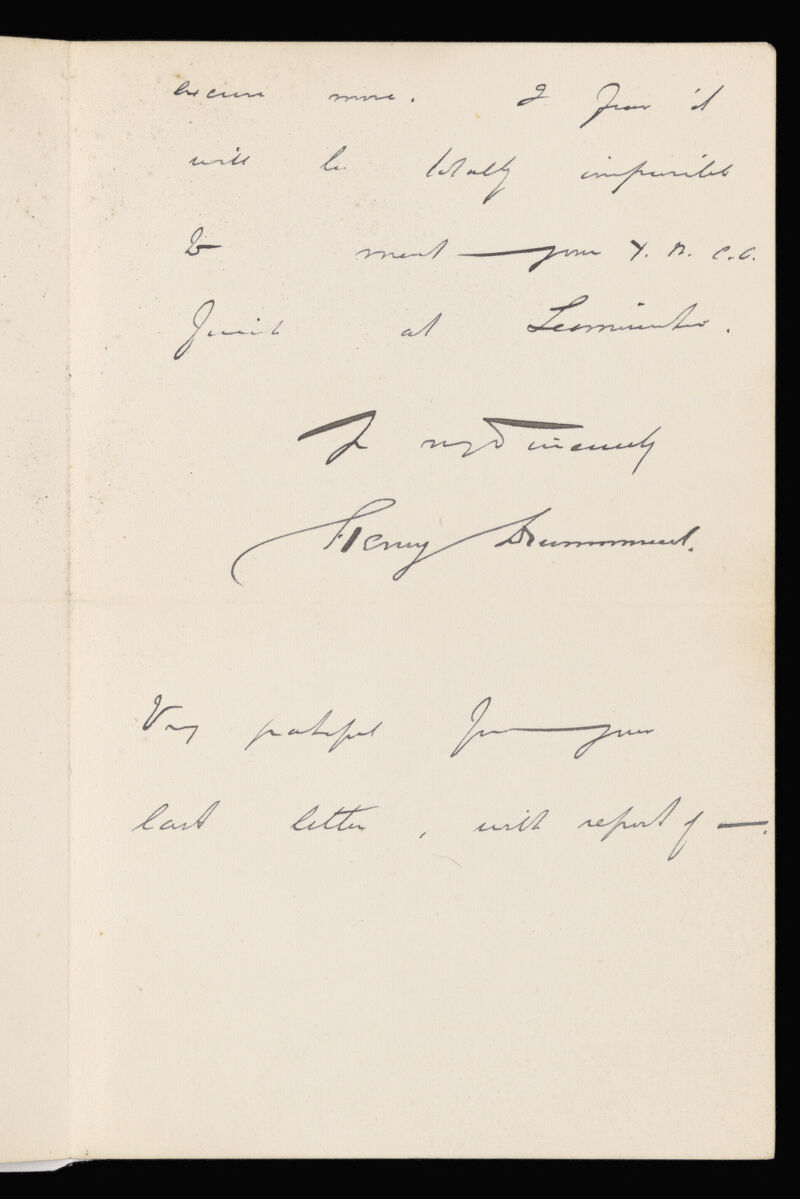 excuse more. I fear it
will be totally impossible
to meet your Y. M. C. A.
friends at Leominster.
sincerely
Henry Drummond.
Very grateful for your
last letter, with report of —.